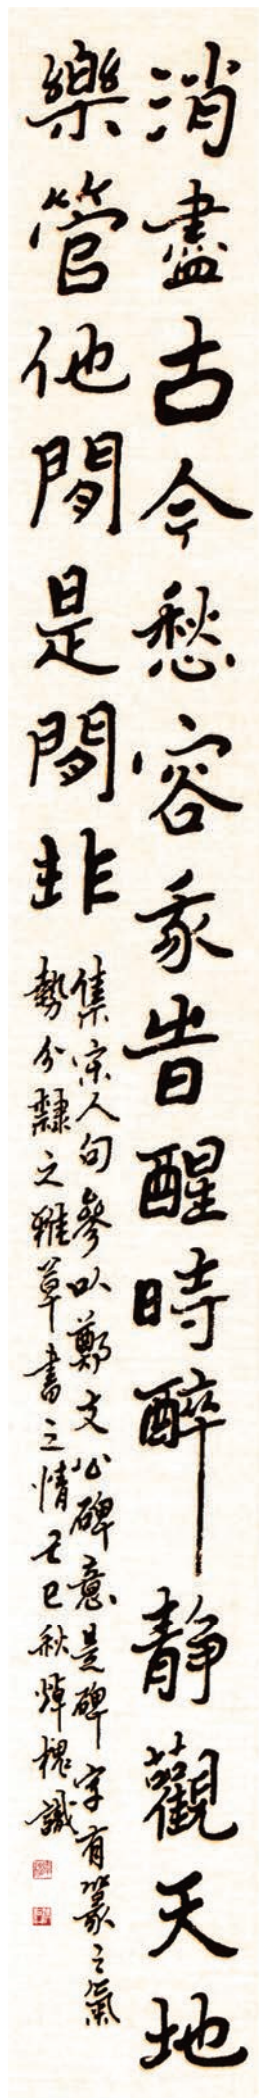 消盡古今愁容我時醒時醉靜觀天地
樂管他閒是閒非
集宋人句參以鄭文公碑意是碑字有篆之氣
勢分隸之雅草書之情乙巳秋焯槐識